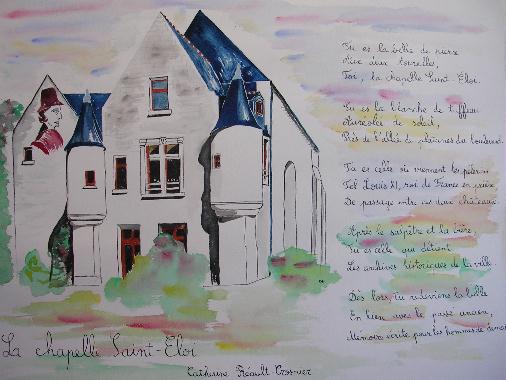 Tu es la belle de pierre
Aux deux tourelles,
Toi, la chapelle Saint-Eloi.
Tu es la blanche de tuffeau
Auréolée de soleil,
Près de l'allée de platanes du boulevard.
Tu es celle où viennent les pèlerins
Tel Louis XI, roi de France en prière
De passage entre ses deux châteaux.
Après le salpêtre et la bière,
Tu es celle qui détient
Les archives historiques de la ville.
Dès lors, tu redeviens la belle
En lien avec le passé ancien,
Mémoire écrite pour les hommes de demain
La chapelle Saint-Eloi
Catherine Réault-Crosnier